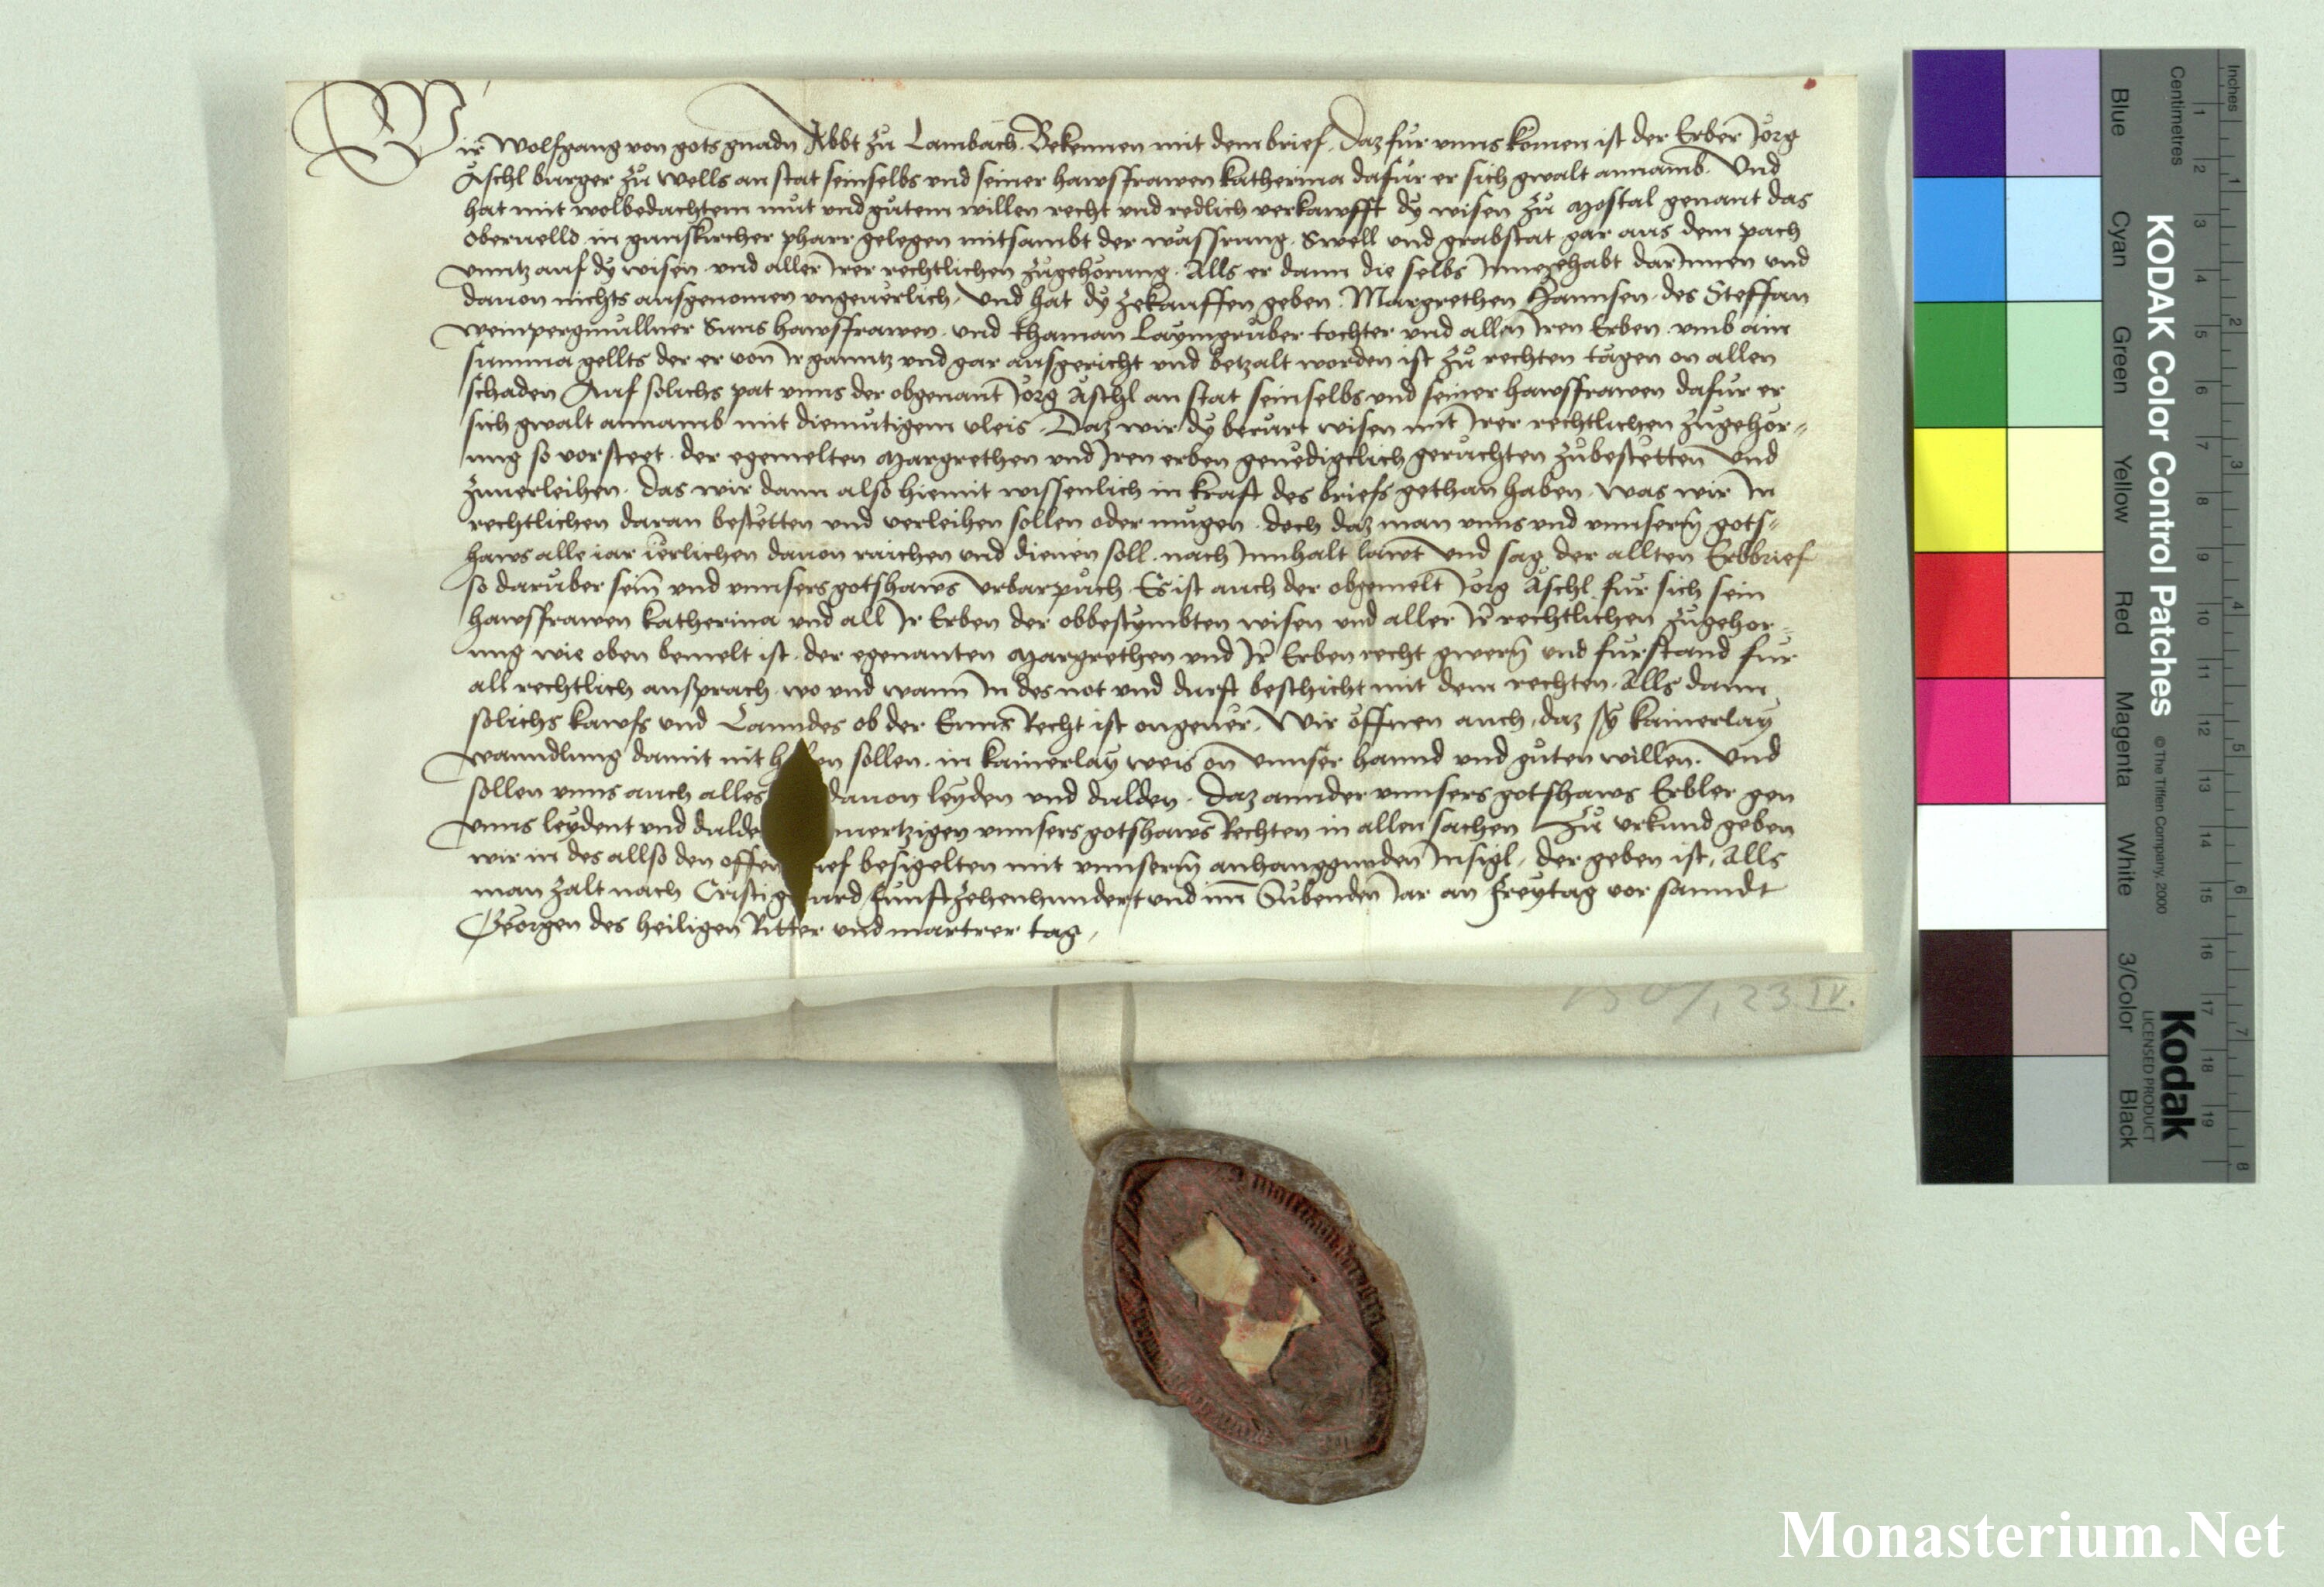 Wir Wolfgang von gots gnadn Abbt zu Lambach. Bekennen mit dem brief. Daz fur vnns komen ist der Erber Jorg
Äschl burger zu Wells an stat sein selbs vnd seiner hawsfrawen Katherina dafur er sich gwalt annamb. Vnd
hat mit wolbedachtem mut vnd gutem willen recht vnd redlich verkawfft dy wisen zu Mostal genant das
in gunskircher pharr gelegen mitsambt der wassrung. Swell vnd grabstat gar aus dem pach
vnntz auf dy wisen vnd aller Irer rechtlichen zugehorung. Alls er dann die selbs Innegehabt darInnen vnd
dauon nichts ausgenomen vngeuerlich. Vnd hat dy zekauffen geben. Margrethen Hannsen des Steffan
Weinpergmullner Suns hawsfrawen. vnd Thaman Laymgruber tochter vnd allen Iren Erben vmb ain
summa gellts der er von Ir ganntz vnd gar ausgericht vnd betzalt worden ist zu rechten tägen on allen
schaden Auf solichs pat vnns der obgenant Jorg Äschl an stat sein selbs vnd seiner hawsfrawen dafur er
sich gwalt annamb mit diemutigem vleis. Daz wir dy berurt wisen mit Irer rechtlichen zugehor-
ung so vorsteet. der egemelten Margrethen vnd Iren erben genedigclich geruchten zubestetten Vnd
zuuerleihen. das wir dann also hiemit wissenlich in kraft des briefs gethan haben. Was wir In
rechtlichen daran bestetten vnd verleihen sollen oder mugen. doch daz man vnns vnd vnnserm gots-
haws alle iar ierlichen dauon raichen vnd dienen soll. nach Innhalt lawt Vnd sag der allten Erbbrief
so daruber sein vnd vnnsers gotshaws Vrbarpuch Es ist auch der obgemelt Jorg Äschl fur sich sein
hawsfrawen Katherina vnd all Ir Erben der obbestymbten wisen vnd aller Ir rechtlichen zugehor-
ung wie oben bemelt ist. der egenanten Margrethen vnd Ir Erben recht gwern vnd furstand fur
all rechtlich ansprach. wo vnd wann In des not vnd durft beschicht mit dem rechten. Alls dann
solichs kawfs vnd Lanndes ob der Enns Recht ist ongeuer. Wir offnen auch, daz sy kainerlay
wanndlung damit nit haben sollen. in kainerlay weis on vnnser hannd vnd guten willen. Vnd
sollen vnns auch alles dauon leyden vnd dulden. Daz annder vnnsers gotshaws Erbler gen
vnns leydent vnd dulde vnnsers gotshaws Rechten in allen sachen Zu vrkund geben
wir in des allso den offen brief besigelten mit vnnserm anhanggunden Insigl, der geben ist, Alls
man zalt nach Cristi gepurd funftzehenhundert vnd im Subenden Jar an freytag vor sanndt
Georgen des heiligen Ritter vnd martrer tag,
1507, 23. IV.
KODAK Color Control Patches
© The Tiffen Company, 2000
Kodak
LICENSED PRODUCT
Blue Cyan Green Yellow Red Magenta White 3/Color Black
Inches
1 2 3 4 5 6 7 8
Centimetres
1 2 3 4 5 6 7 8 9 10 11 12 13 14 15 16 17 18 19
Monasterium.Net